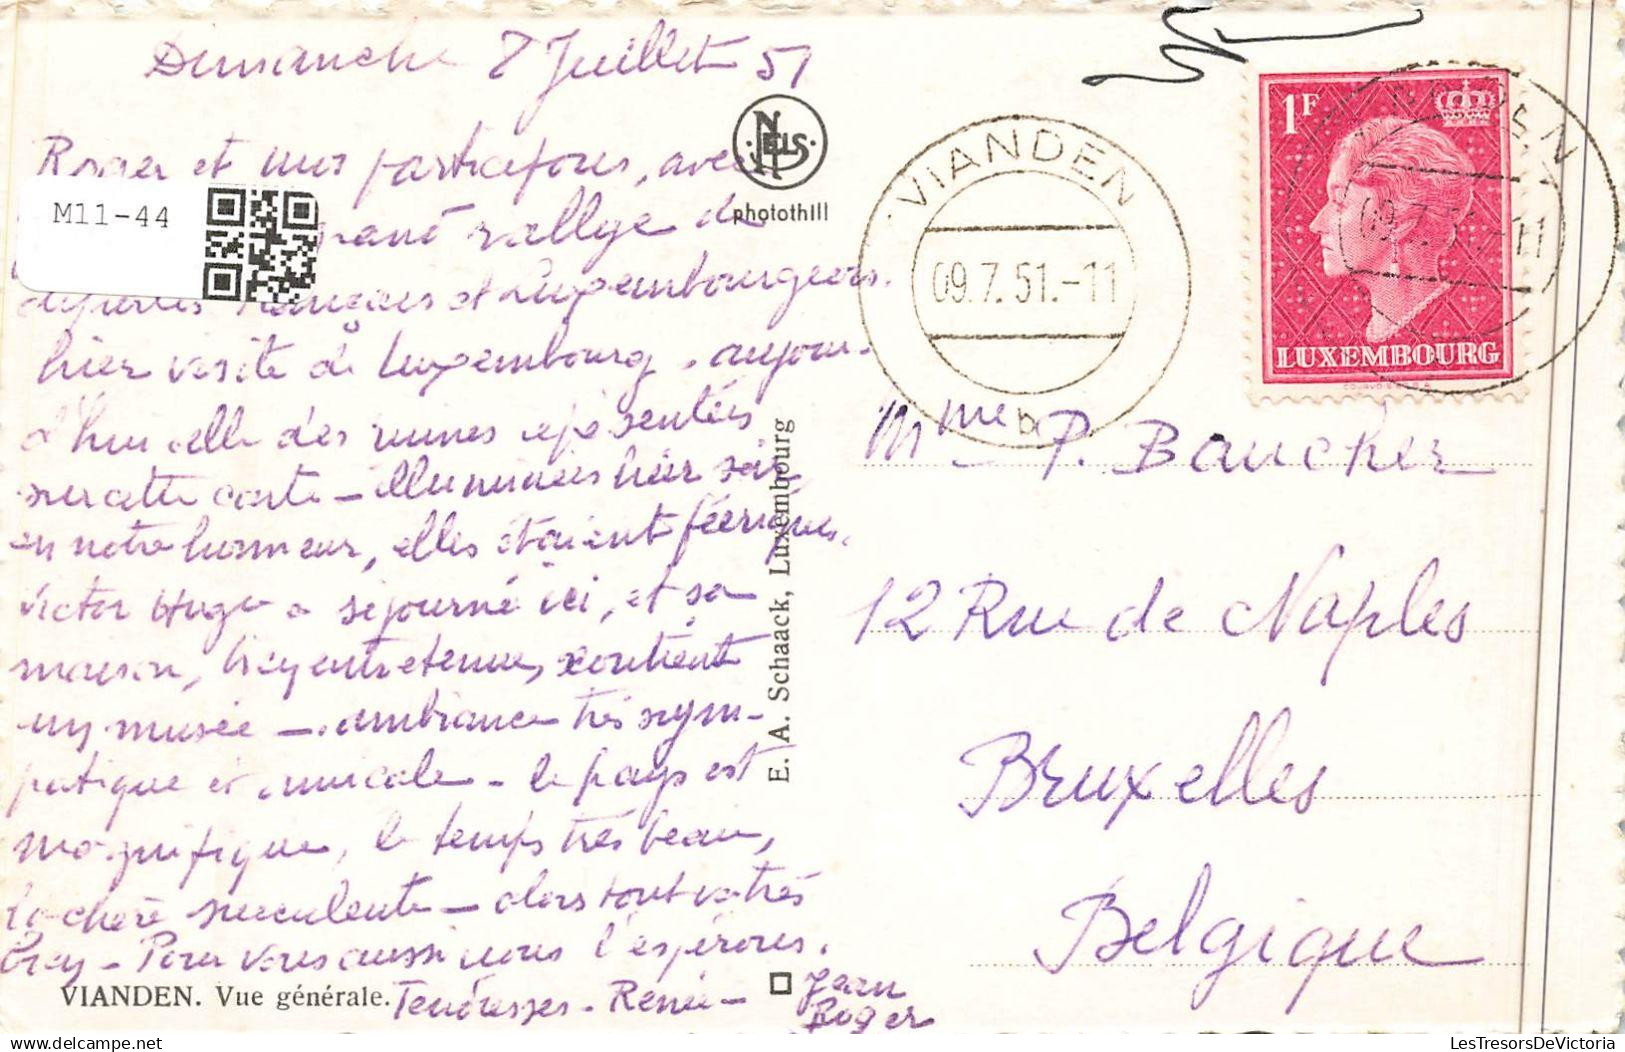 Dimanche 8 Juillet 51
Roger et moi participons, avec
M11-44
grand rallye de
français et Luxembourgeois.
hier visite de Luxembourg. aujour-
d'hui celle des ruines représentées
sur cette carte - illuminées hier soir
en notre honneur, elles étaient féeriques.
Victor Hugo a séjourné ici, et sa
maison, bien entretenue, contient
un musée - ambiance très sym-
patique et amicale - le pays est
magnifique, le temps très beau,
la chère succulente - alors tout va très
bien - Pour vous aussi nous l'espérons.
Tendresses - Renée -
Jean
Roger
VIANDEN. Vue générale.
NELS
photothill
E. A. Schaack, Luxembourg
VIANDEN
09.7.51.-11
b
1F
LUXEMBOURG
09.7.51.-11
Mme P. Baucher
12 Rue de Naples
Bruxelles
Belgique
LesTresorsDeVictoria